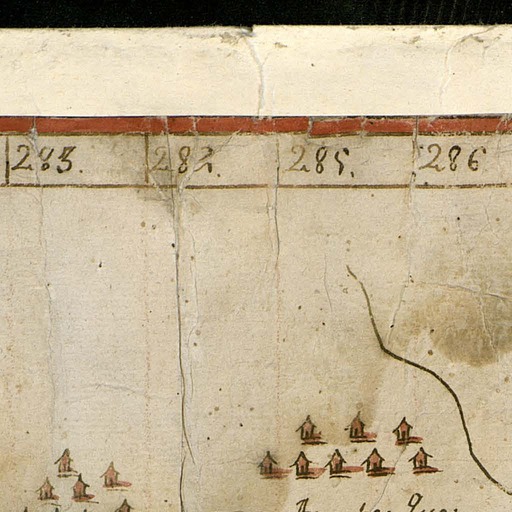 283. 284. 285. 286